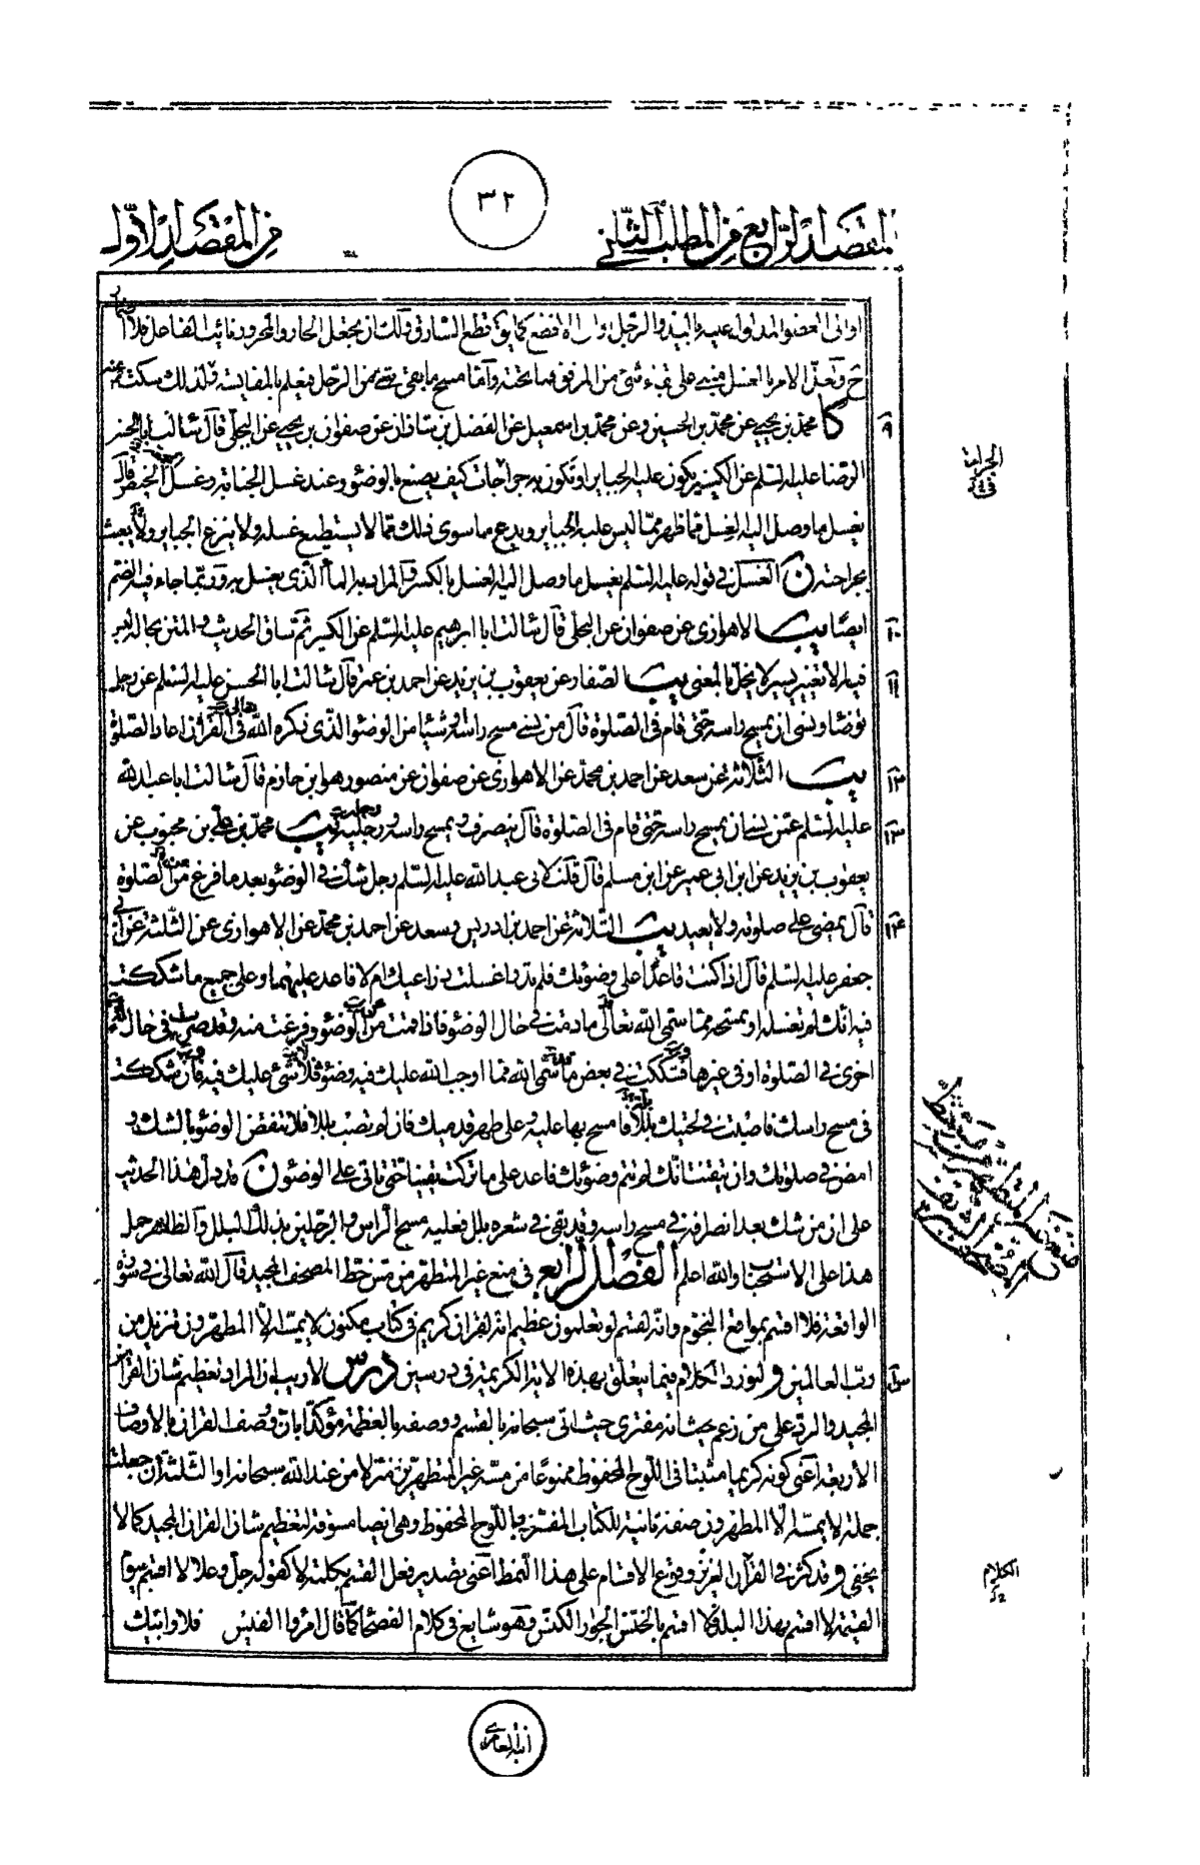 ٣٢
المقصد الرابع من المطلب الثاني
من المقصد الاول
محمد بن يحيى عن محمد بن الحسين وعن محمد بن اسمعيل عن الفضل بن شاذان عن صفوان بن يحيى عن البجلي قال سالت ابا الحسن
الرضا عليه السلم عن الكسير يكون عليه الجباير او تكون به جراحات كيف يصنع بالوضوء وعند غسل الجنابة وغسل الجمعة قال
يغسل ما وصل اليه الغسل مما ظهر مما ليس عليه الجباير ويدع ما سوى ذلك مما لا يستطيع غسله ولا ينزع الجباير ولا يعبث
بجراحته ن الغسل في قوله عليه السلم يغسل ما وصل اليه الغسل بالكسر والمراد به الماء الذي يغسل به وربما جاء فيه الضم
ايضا يب الاهوازي عن صفوان عن البجلي قال سالت ابا ابرهيم عليه السلم عن الكسير ثم ساق الحديث والمتن بحاله ليس
فيه الا تغيير يسير لا يخل بالمعنى يب الصفار عن يعقوب بن يزيد عن احمد بن عمر قال سالت ابا الحسن عليه السلم عن رجل
توضا ونسى ان يمسح راسه حتى قام في الصلوة قال من نسى مسح راسه او شيئا من الوضوء الذي ذكره الله في القران اعاد الصلوة
يب الثلاثة عن سعد عن احمد بن محمد عن الاهوازي عن صفوان عن منصور هو ابن حازم قال سالت ابا عبد الله
عليه السلم عمن نسى ان يمسح راسه حتى قام في الصلوة قال ينصرف ويمسح راسه ورجليه يب محمد بن علي بن محبوب عن
يعقوب بن يزيد عن ابن ابي عمير عن ابن مسلم قال قلت لابي عبد الله عليه السلم رجل شك في الوضوء بعد ما فرغ من الصلوة
قال يمضي على صلوته ولا يعيد يب الثلاثة عن احمد بن ادريس وسعد عن احمد بن محمد عن الاهوازي عن الثلثة عن ابي
جعفر عليه السلم قال اذا كنت قاعدا على وضوئك فلم تدر اغسلت ذراعيك ام لا فاعد عليهما وعلى جميع ما شككت
فيه انك لم تغسله او تمسحه مما سمى الله تعالى ما دمت في حال الوضوء فاذا قمت من الوضوء وفرغت منه وقد صرت في حال
اخرى في الصلوة او في غيرها فشككت في بعض ما سمى الله مما اوجب الله عليك فيه وضوء فلا شئ عليك فيه فان شككت
في مسح راسك فاصبت في لحيتك بللا فامسح بها عليه وعلى ظهر قدميك فان لم تصب بللا فلا تنقض الوضوء بالشك و
امض في صلوتك وان تيقنت انك لم تتم وضوئك فاعد على ما تركت يقينا حتى تاتي على الوضوء ن قد دل هذا الحديث
على ان من شك بعد انصرافه في مسح راسه وقد بقى في شعره بلل فعليه مسح الراس والرجلين بذلك البلل والظاهر حمل
هذا على الاستحباب والله اعلم الفصل الرابع في منع غير المتطهر من مس خط المصحف المجيد قال الله تعالى في سورة
الواقعة فلا اقسم بمواقع النجوم وانه لقسم لو تعلمون عظيم انه لقران كريم في كتاب مكنون لا يمسه الا المطهرون تنزيل من
رب العالمين ولنورد الكلام فيما يتعلق بهذه الاية الكريمة في درسين درس لا ريب ان المراد تعظيم شان القران
المجيد والرد على من زعم انه مفترى حيث اتى سبحانه بالقسم ووصفه بالعظمة مؤكدا بان وصف القران بالاوصاف
الاربعة اعني كونه كريما مثبتا في اللوح المحفوظ ممنوعا من مسه غير المتطهرين منزلا من عند الله سبحانه او الثلثة ان جعلت
جملة لا يمسه الا المطهرون صفة ثانية للكتاب المفسر باللوح المحفوظ وهي ايضا مسوقة لتعظيم شان القران المجيد كما لا
يخفى وقد كثر في القرآن العزيز وقوع الاقسام على هذا النمط اعني تصدير فعل القسم بكلمة لا كقوله جل وعلا لا اقسم بيوم
القيمة لا اقسم بهذا البلد فلا اقسم بالخنس الجوار الكنس وهو شايع في كلام الفصحاء كما قال امرؤ القيس فلا وابيك
٩
١٠
١١
١٢
١٣
١٤
الكلام